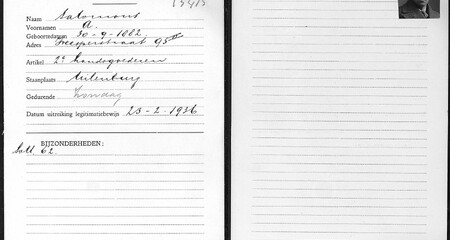 Naam Salomons
Voornamen A.
Geboortedatum 30-9-1882
Adres Weesperstraat 95 II
Artikel 2e handsgoederen
Staanplaats Uilenburg
Gedurende Zondag
Datum uitreiking legitimatiebewijs 23-2-1936
BIJZONDERHEDEN:
62